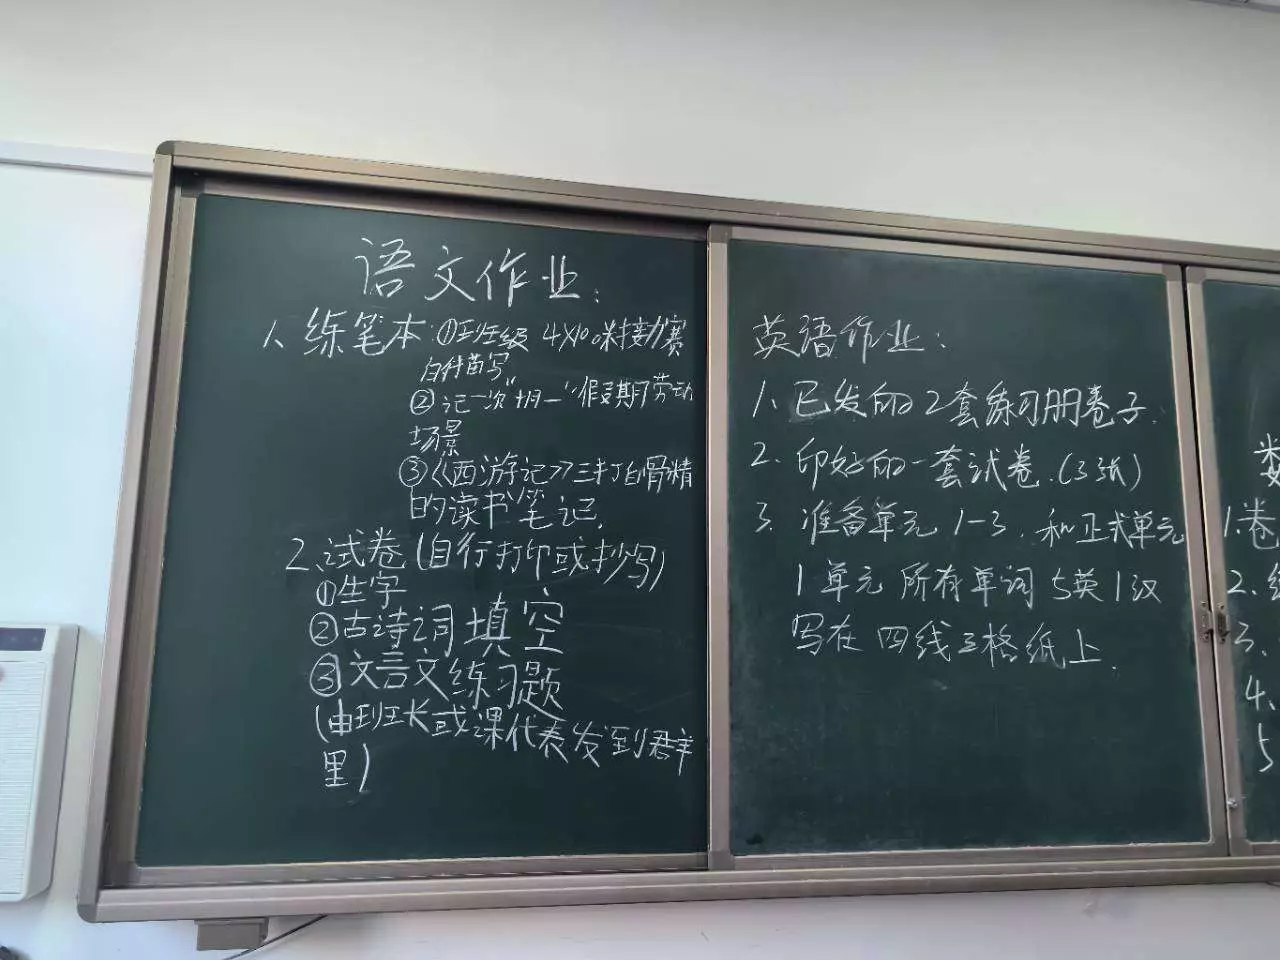 语文作业：
1、练笔本：①班级 4×100米接力赛
的描写
②记一次"十一"假期劳动
场景
③《西游记》三打白骨精
的读书笔记.
2、试卷(自行打印或抄写)
①生字
②古诗词填空
③文言文练习题
(由班长或课代表发到群
里)
英语作业：
1、已发的2套练习册卷子.
2. 印好的一套试卷.(3张)
3. 准备单元 1-3. 和正式单元
1单元 所有单词 5英1汉
写在 四线三格纸上.
数
1.卷
2.
3、
4、
5